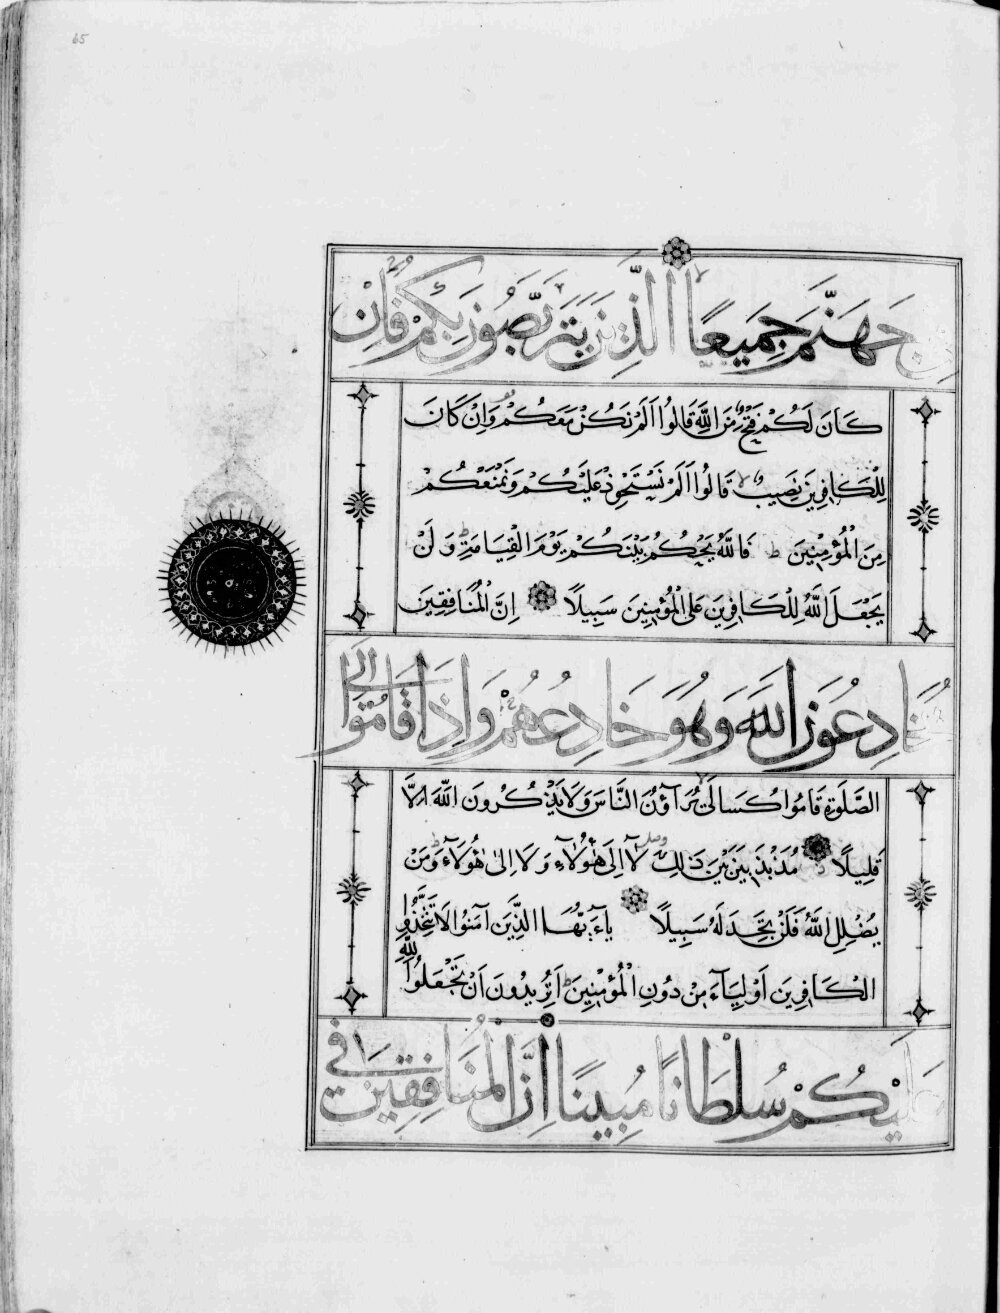 65
جَهَنَّمَ جَمِيعًا الَّذِينَ يَتَرَبَّصُونَ بِكُمْ فَاِنْ
كَانَ لَكُمْ فَتْحٌ مِنَ اللَّهِ قَالُوا اَلَمْ نَكُنْ مَعَكُمْ وَاِنْ كَانَ
لِلْكَافِرِينَ نَصِيبٌ قَالُوا اَلَمْ نَسْتَحْوِذْ عَلَيْكُمْ وَنَمْنَعْكُمْ
مِنَ الْمُؤْمِنِينَ ط فَاللَّهُ يَحْكُمُ بَيْنَكُمْ يَوْمَ الْقِيَامَةِ ط وَلَنْ
يَجْعَلَ اللَّهُ لِلْكَافِرِينَ عَلَى الْمُؤْمِنِينَ سَبِيلًا اِنَّ الْمُنَافِقِينَ
يُخَادِعُونَ اللَّهَ وَهُوَ خَادِعُهُمْ وَاِذَا قَامُوا اِلَى
الصَّلٰوةِ قَامُوا كُسَالَى يُرَآؤُنَ النَّاسَ وَلَا يَذْكُرُونَ اللَّهَ اِلَّا
قَلِيلًا مُذَبْذَبِينَ بَيْنَ ذَلِكَ لَآ اِلَى هٰؤُلَآءِ وَلَا اِلَى هٰؤُلَآءِ ط وَمَنْ
يُضْلِلِ اللَّهُ فَلَنْ تَجِدَ لَهُ سَبِيلًا يَآءَيُّهَا الَّذِينَ آمَنُوا لَا تَتَّخِذُوا
الْكَافِرِينَ اَوْلِيَآءَ مِنْ دُونِ الْمُؤْمِنِينَ ط اَتُرِيدُونَ اَنْ تَجْعَلُوا لِلَّهِ
عَلَيْكُمْ سُلْطَانًا مُبِينًا اِنَّ الْمُنَافِقِينَ فِي